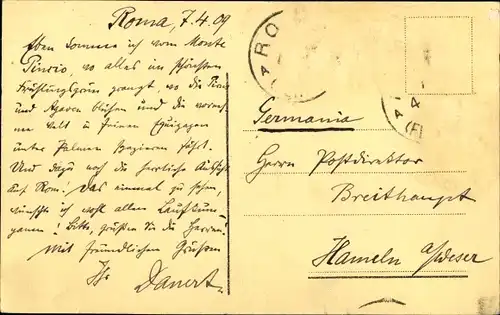 Roma, 7.4.09
Eben komme ich vom Monte
Pincio, wo alles im schönsten
Frühlingsgrün prangt, wo die
und Agaven blühen und die vorneh-
me Welt in feinen Equipagen
unter Palmen spazieren fährt.
Und dazu noch die herrliche Aussicht
auf Rom! Das einmal zu sehen,
wünschte ich wohl allen
Bitte, grüßen Sie die Herren!
Mit freundlichen Grüßen
Ihr
Danert.
RO
Germania
Herrn Postdirektor
Breithaupt
Hameln a/Weser